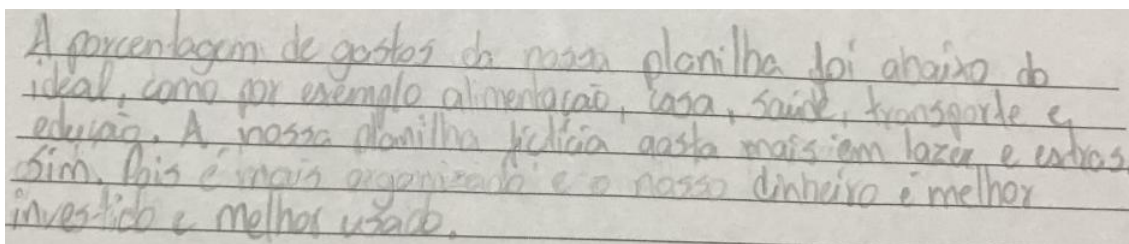 A porcentagem de gastos da nossa planilha foi abaixo do
ideal, como por exemplo alimentação, casa, saúde, transporte e
educão. A nossa planilha fictícia gasta mais em lazer e extras
Sim, Pois é mais organizado e o nosso dinheiro é melhor
investido e melhor usado.